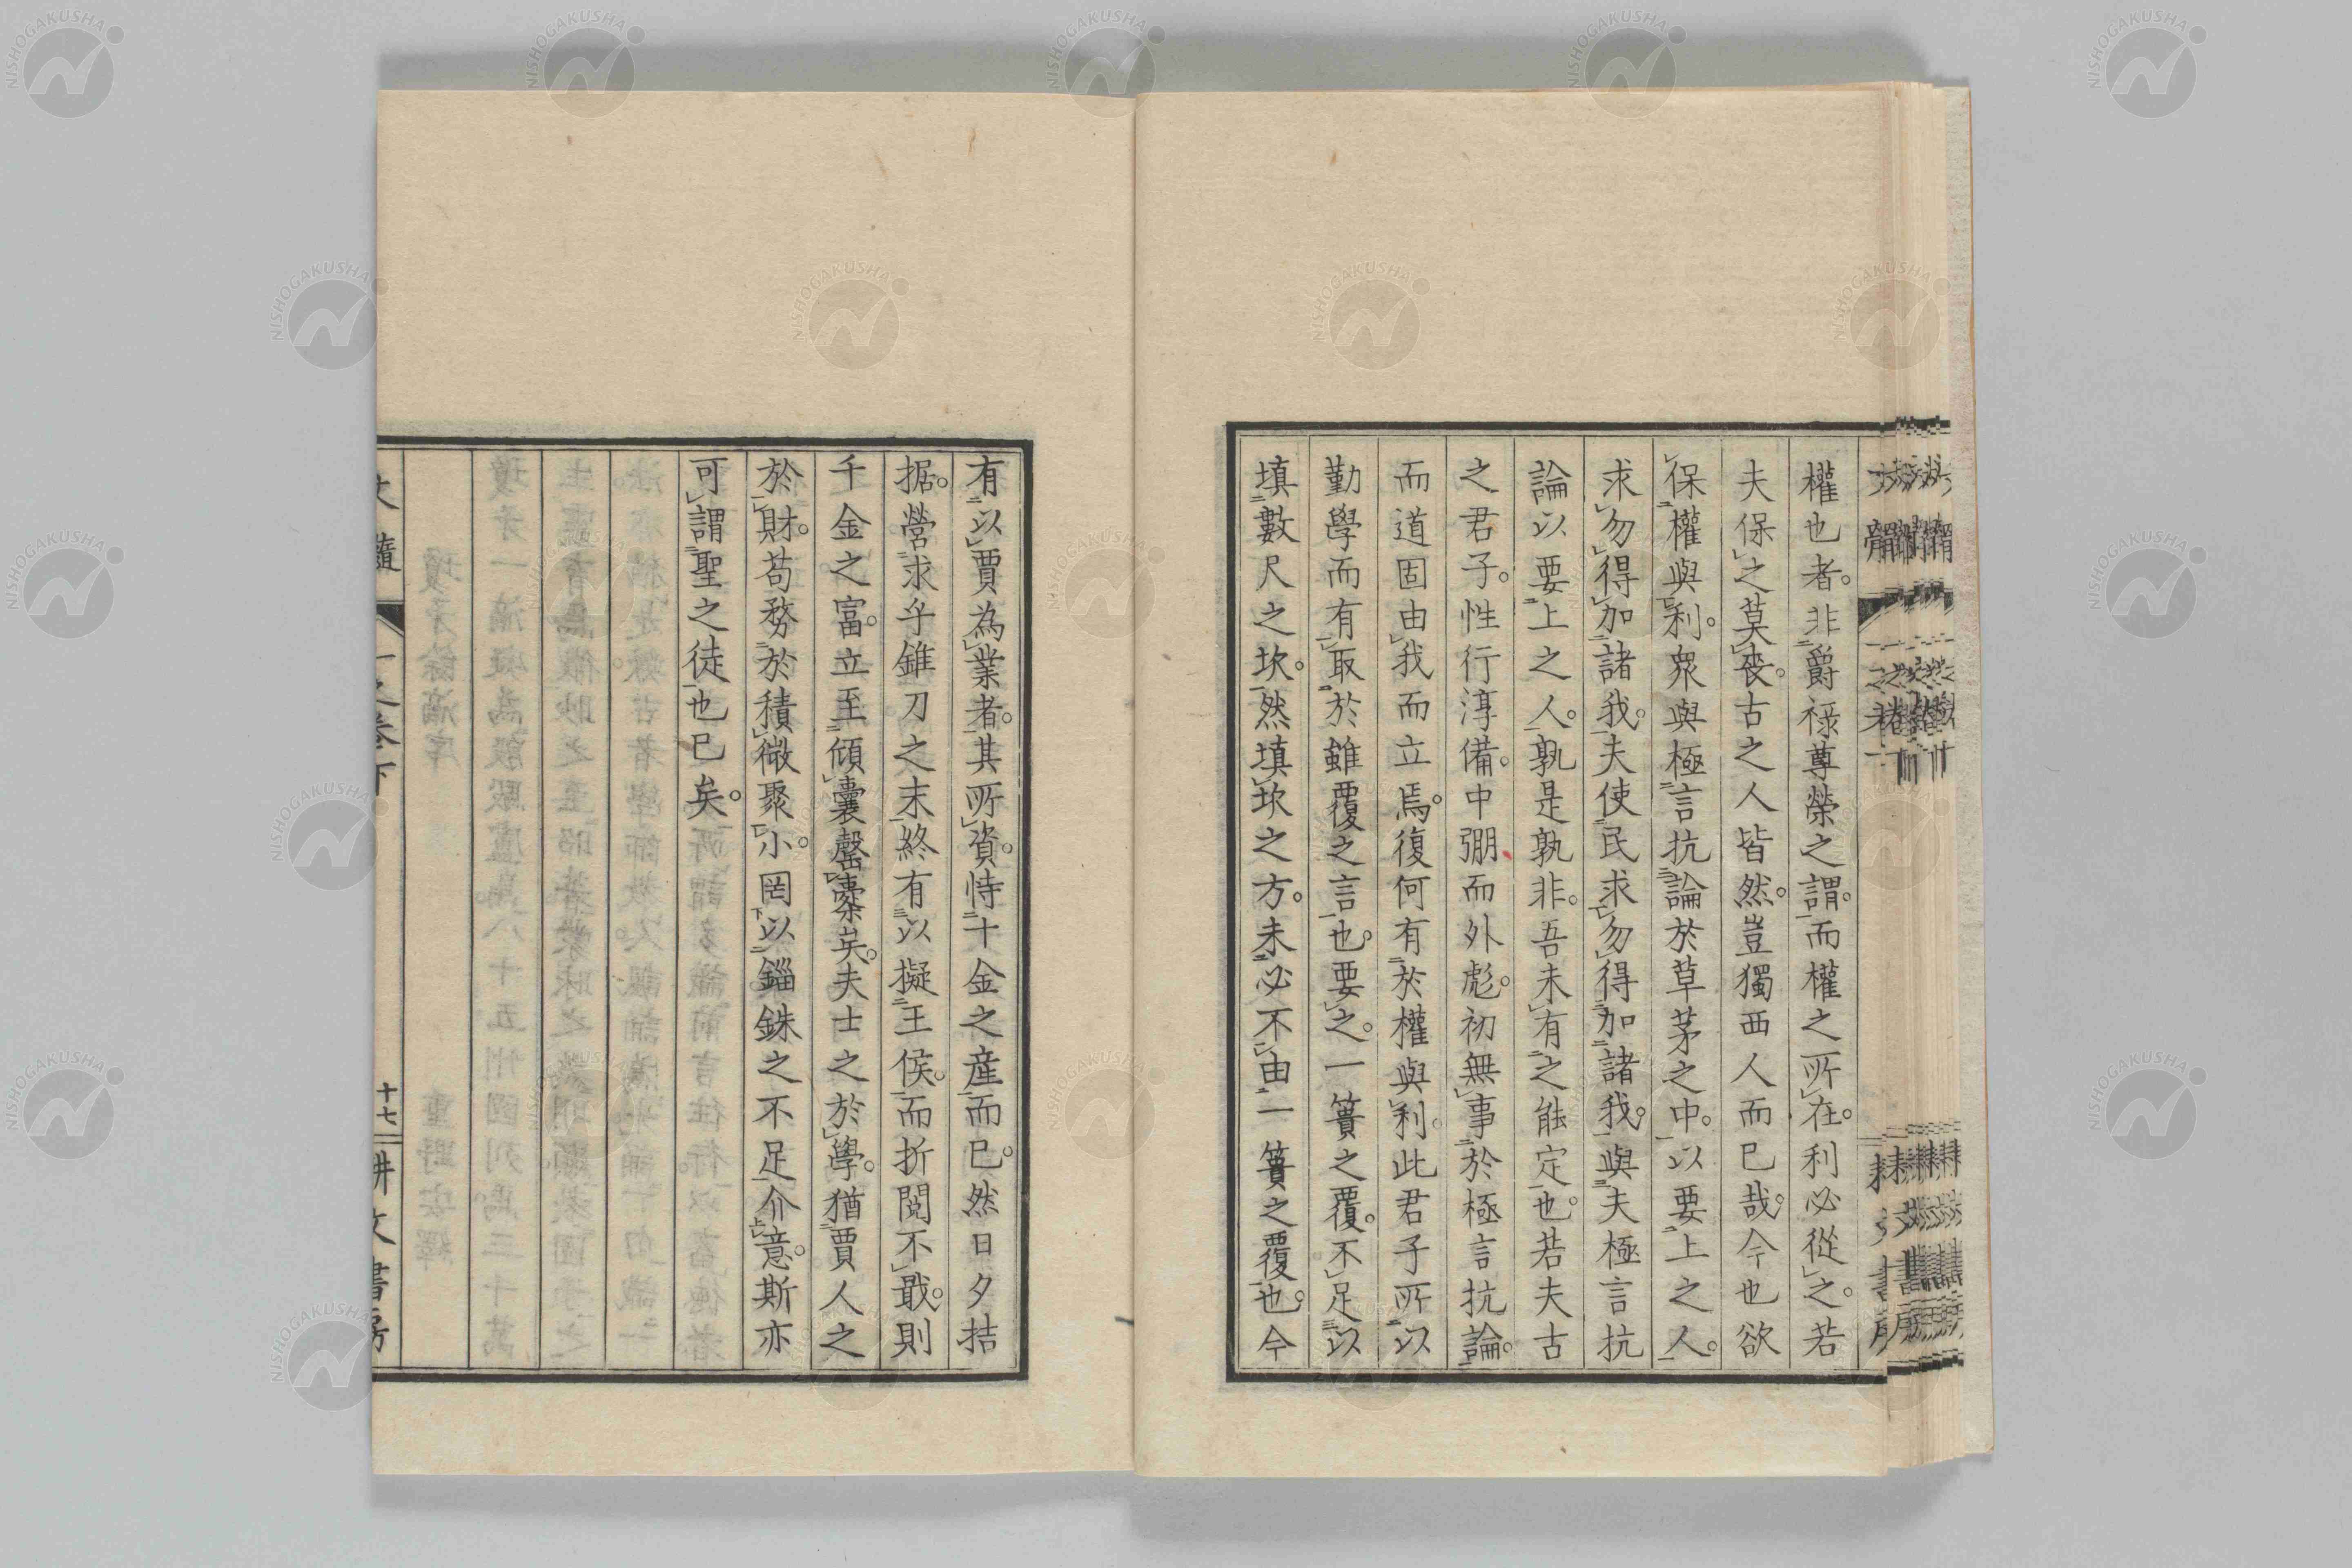 權也者。非爵祿尊榮之謂。而權之所在。利必從之。若
夫保之莫喪。古之人皆然。豈獨西人而已哉。今也欲
保權與利。衆與極言抗論於草茅之中。以要上之人。
求勿得加諸我。夫使民求勿得加諸我。與夫極言抗
論以要上之人。孰是孰非。吾未有之能定也。若夫古
之君子。性行淳備。中弸而外彪。初無事於極言抗論。
而道固由我而立焉。復何有於權與利。此君子所以
勤學而有取於雖覆之言也。要之。一簣之覆。不足以
填數尺之坎。然填坎之方。未必不由一簣之覆也。今
有以賈為業者。其所資。恃十金之産而已。然日夕拮
据。營求乎錐刀之末。終有以擬王侯。而折閱不戢。則
千金之富。立至傾囊罄橐矣。夫士之於學。猶賈人之
於財。苟務於積微聚小。罔以錙銖之不足介意。斯亦
可謂聖之徒也已矣。
十七
耕文書房
NISHOGAKUSHA